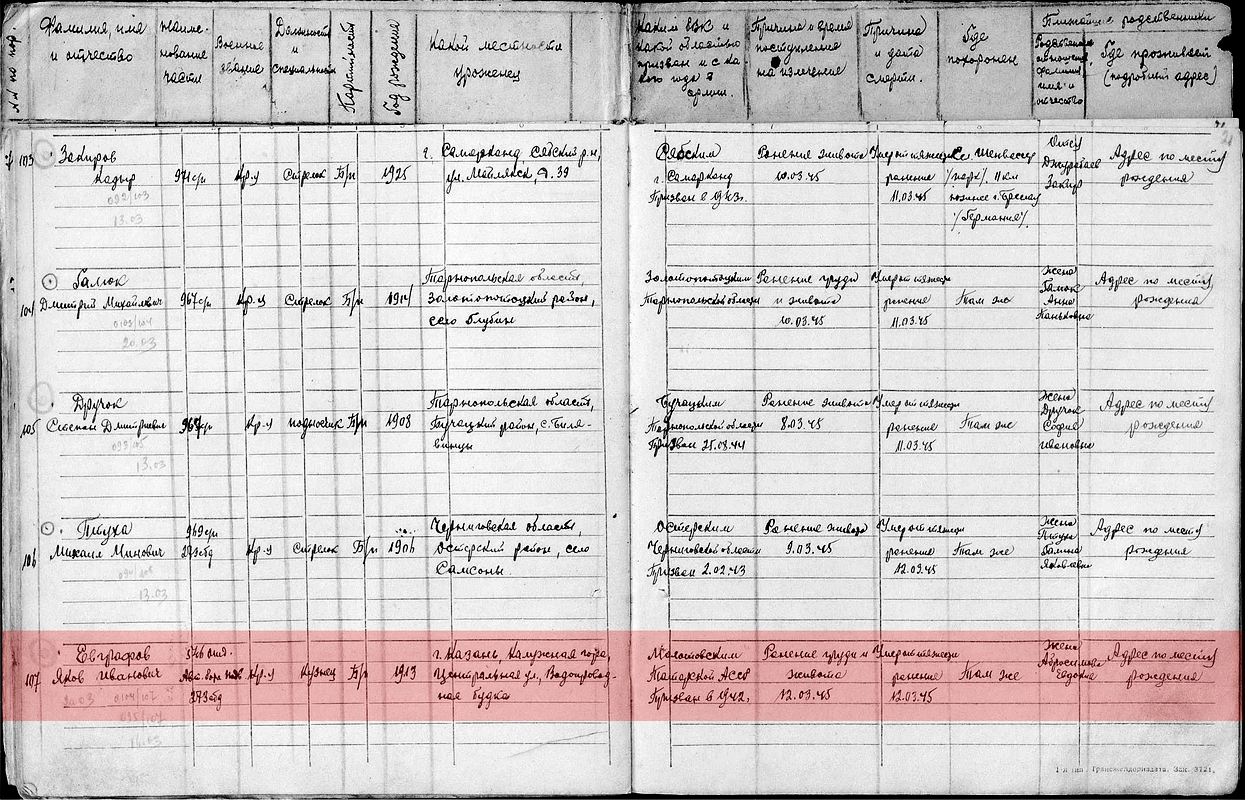 №№ по пор.
Фамилия, имя
и отчество
Наиме-
нование
части
Военное
звание
Должность
и
специальность
Партийность
Год рождения
Какой местности
уроженец
Каким РВК и
какой области
призван и с ка-
кого года в
армии.
Причина и время
поступления
на излечение
Причина
и дата
смерти.
Где
похоронен
Ближайшие родственники
Родственные
отношения
фамилия
имя и
отчество
Где проживает
(подробный адрес)
21
103
Закиров
Кадыр
971 сп
Кр-ц
Стрелок
Б/п
1925
г. Самарканд, Сябский р-н,
ул. д. 39
Сябским
г. Самарканд
Призван в 1943г.
Ранение живота
10.03.45
Умер от тяжести
ранение
11.03.45
/парк/, 11 км
южнее г. Бреслау
/Германия/.
Отец
Джурабаев
Закир
Адрес по месту
рождения
092/103
13.03
104
Галюк
Дмитрий Михайлович
967 сп
Кр-ц
Стрелок
Б/п
Тарнопольская область,
Золотопотоцкий район,
село Глубин
Золотопотоцким
Тарнопольской области
Ранение груди
и живота
10.03.45
Умер от тяжести
ранение
11.03.45
Там же
Жена
Галюк
Анна
Адрес по месту
рождения
0103/104
20.03
105
Дручок
Степан Дмитриевич
Кр-ц
подносчик
Б/п
1908
Тарнопольская область,
Бучацкий район, с. Биля-
винцы
Бучацким
Тарнопольской области
Призван 25.08.44
Ранение живота
8.03.45
Умер от тяжести
ранение
11.03.45
Там же
Жена
Дручок
София
Ивановна
Адрес по месту
рождения
13.03
106
Птуха
Михаил Минович
969 сп
273 сд
Кр-ц
Стрелок
Б/п
1906
Черниговская область,
Остерский район, село
Самсоны.
Остерским
Черниговской области
Призван 2.02.43
Ранение живота
9.03.45
Умер от тяжести
ранение
12.03.45
Там же
Жена
Птуха
Галина
Яковлевна
Адрес по месту
рождения
13.03
107
Евграфов
Яков Иванович
273 сд
Кр-ц
Кузнец
Б/п
1913
г. Казань, Калужная гора,
Центральная ул, Водопровод-
ная будка
Молотовским
Татарской АССР
Призван в 1942г.
Ранение груди и
живота
12.03.45
Умер от тяжести
ранение
12.03.45
Там же
Жена
Абросимова
Евдокия
Адрес по месту
рождения
20.03 0104/107
095/107
14.03
1-я тип. Трансжелдориздата. Зак. 3721.